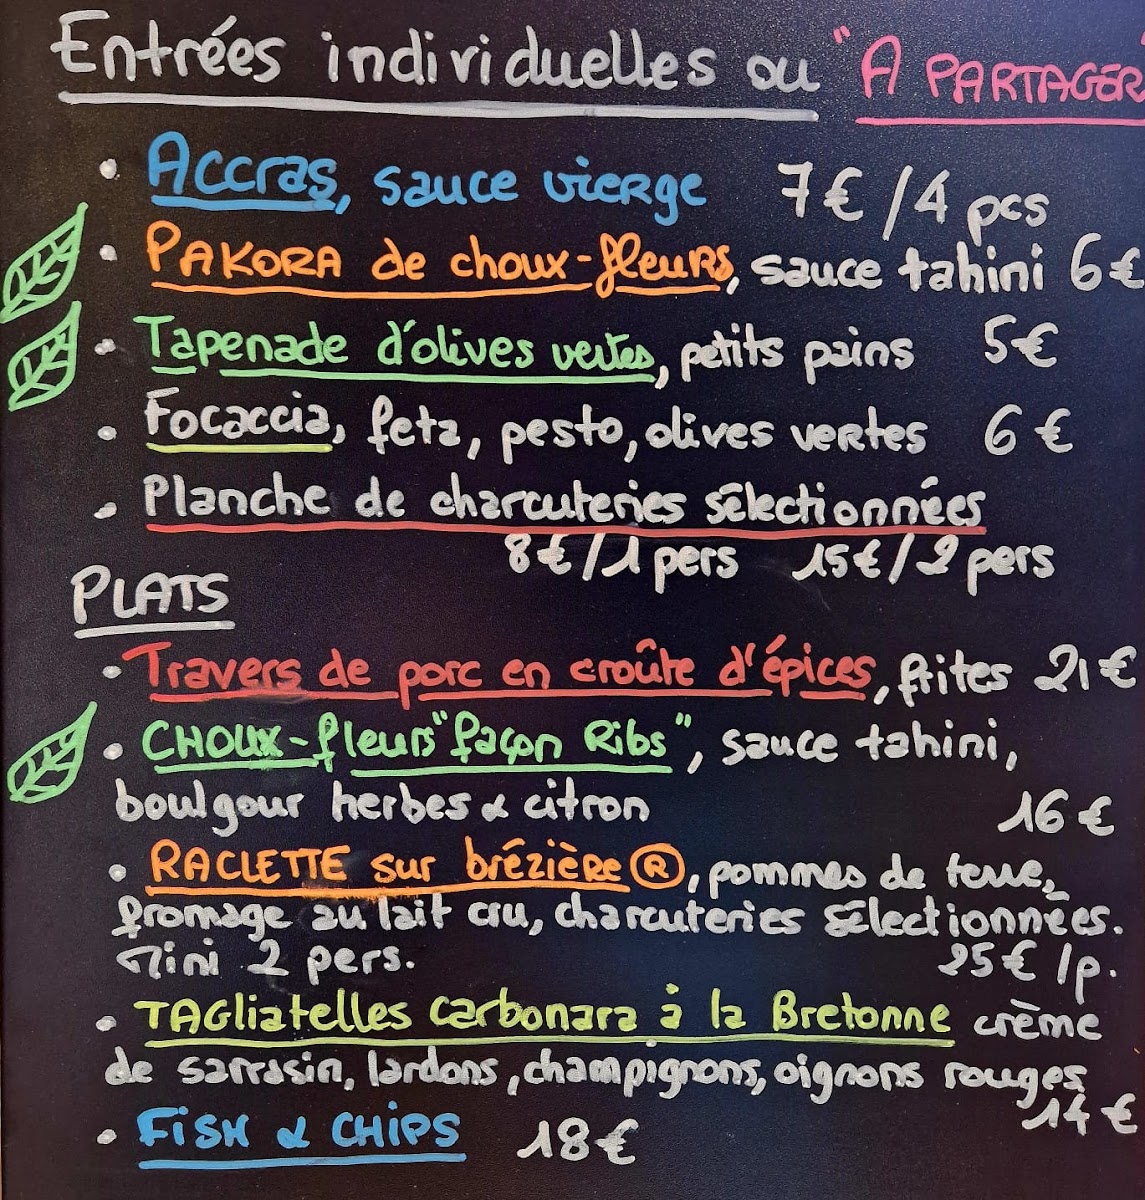 Entrées individuelles ou "A PARTAGER"
• Accras, sauce vierge 7€/4 pcs
• PAKORA de choux-fleurs, sauce tahini 6€
• Tapenade d'olives vertes, petits pains 5€
• Focaccia, feta, pesto, olives vertes 6€
• Planche de charcuteries sélectionnées
8€/1 pers 15€/2 pers
PLATS
• Travers de porc en croûte d'épices, frites 21€
• CHOUX-fleurs "façon Ribs", sauce tahini,
boulgour herbes & citron 16€
• RACLETTE sur brézière®, pommes de terre,
fromage au lait cru, charcuteries sélectionnées.
Mini 2 pers. 25€/p.
• TAGliatelles carbonara à la Bretonne crème
de sarrasin, lardons, champignons, oignons rouges
14€
• FISH & CHIPS 18€